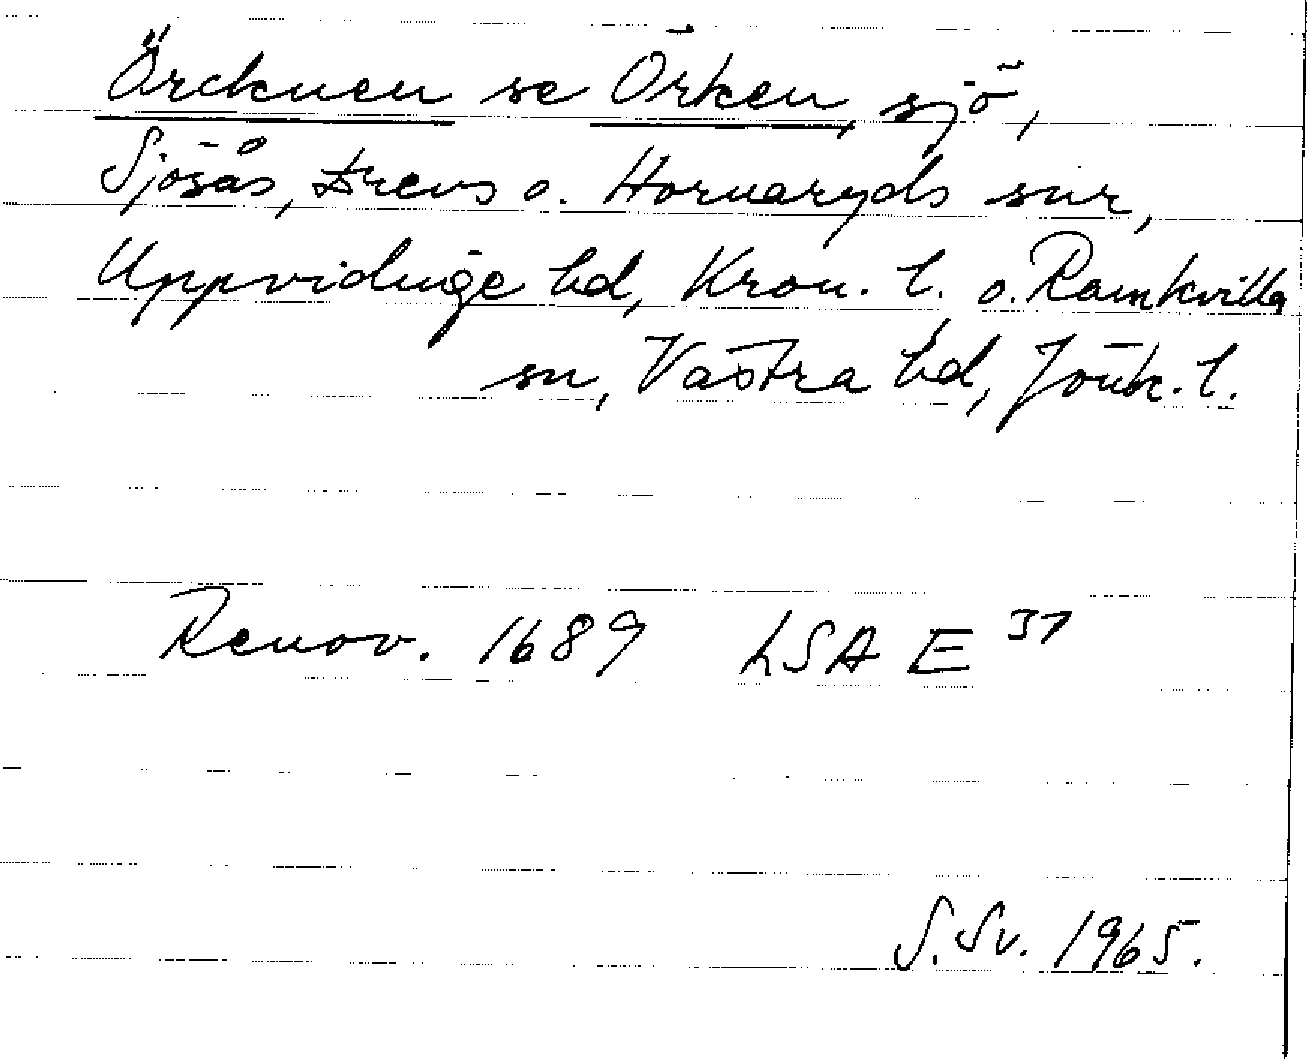 Örcknen se Örken, sjö,
Sjösås, Drevs o. Hornaryds snr,
Uppvidinge hd, Kron. l. o. Ramkvilla
sn, Västra hd, Jönk. l.
Renov. 1689 LSA E 37
S. Sv. 1965.